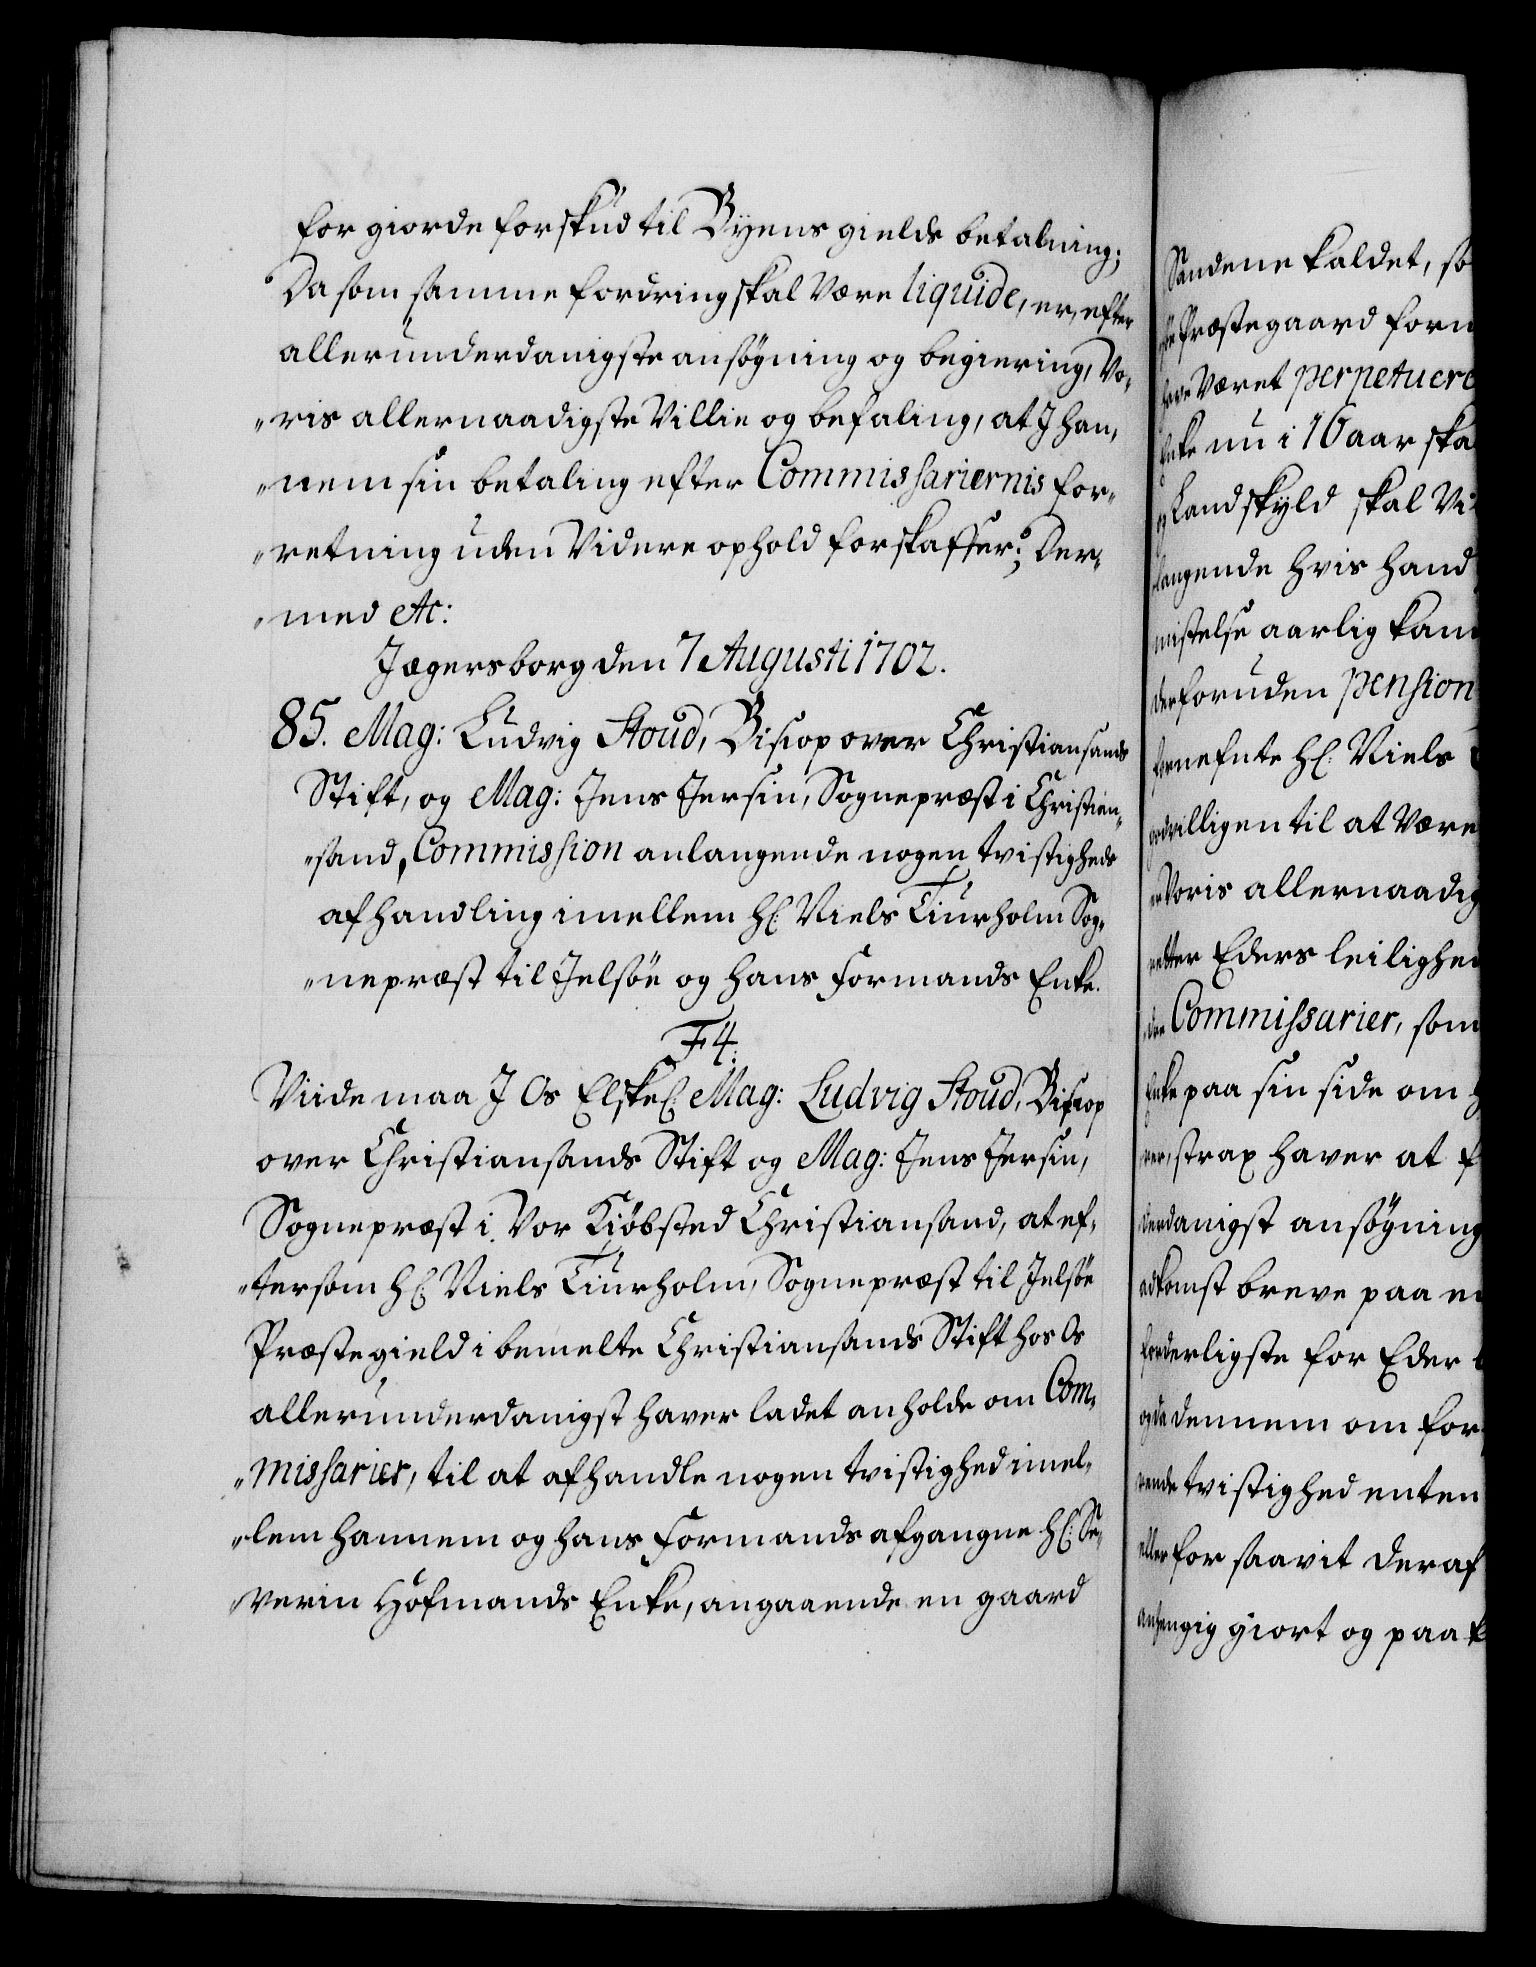 for giorde forskud til Byens gields betalning;
Da som samme fordring skal Være liquide, er, efter
allerunderdanigste ansøgning og begiering, Vo„
„ris allernaadigste Villie og befaling, at J han„
„nem sin betaling efter Commissariernis for„
„retning uden Videre ophold forskaffer; Der„
„med etc:
Jægersborg den 7 Augusti 1702.
85. Mag: Ludvig Stoud, Bisiop over Christiansands
Stift, og Mag: Jens Jersin, Sognepræst i Christian„
„sand, Commission anlangende nogen tvistigheds
afhandling imellem Hl: Niels Tiurholm Sog„
„nepræst til Jelsøe og hans Formands Enke.
F4.
Viide maa J Os Elskel: Mag: Ludvig Stoud, Bisiop
over Christiansands Stift og Mag: Jens Jersin,
Sognepræst i Vor Kiøbsted Christiansand, at ef„
„tersom Hl: Niels Tiurholm, Sognepræst til Jelsøe
Præstegield i bemelte Christiansands Stift hos Os
allerunderdanigst haver ladet anholde om Com„
„missarier, til at afhandle nogen tvistighed imel„
„lem hannem og hans Formands afgangne Hl: Se„
„verin Hofmands Enke, angaaende en gaard
Sandene kaldet, so
Præstegaard forn
Været perpetuere
Enke nu i 16 aar ska
og Landskyld skal Vi
langende hvis hand
mistelse aarlig kan
derforuden pension
fornefnte Hl: Niels
godvilligen til at Være
er Voris allernaadig
retter Eders leilighed
Commissarier, som
Enke paa sin side om
strax haver at f
derdanigst ansøgning
adkomst breve paa e
forderligste for Eder
og da dennem om for
tvistighed enten
eller for saavit deraf
anhengig giort og paa k